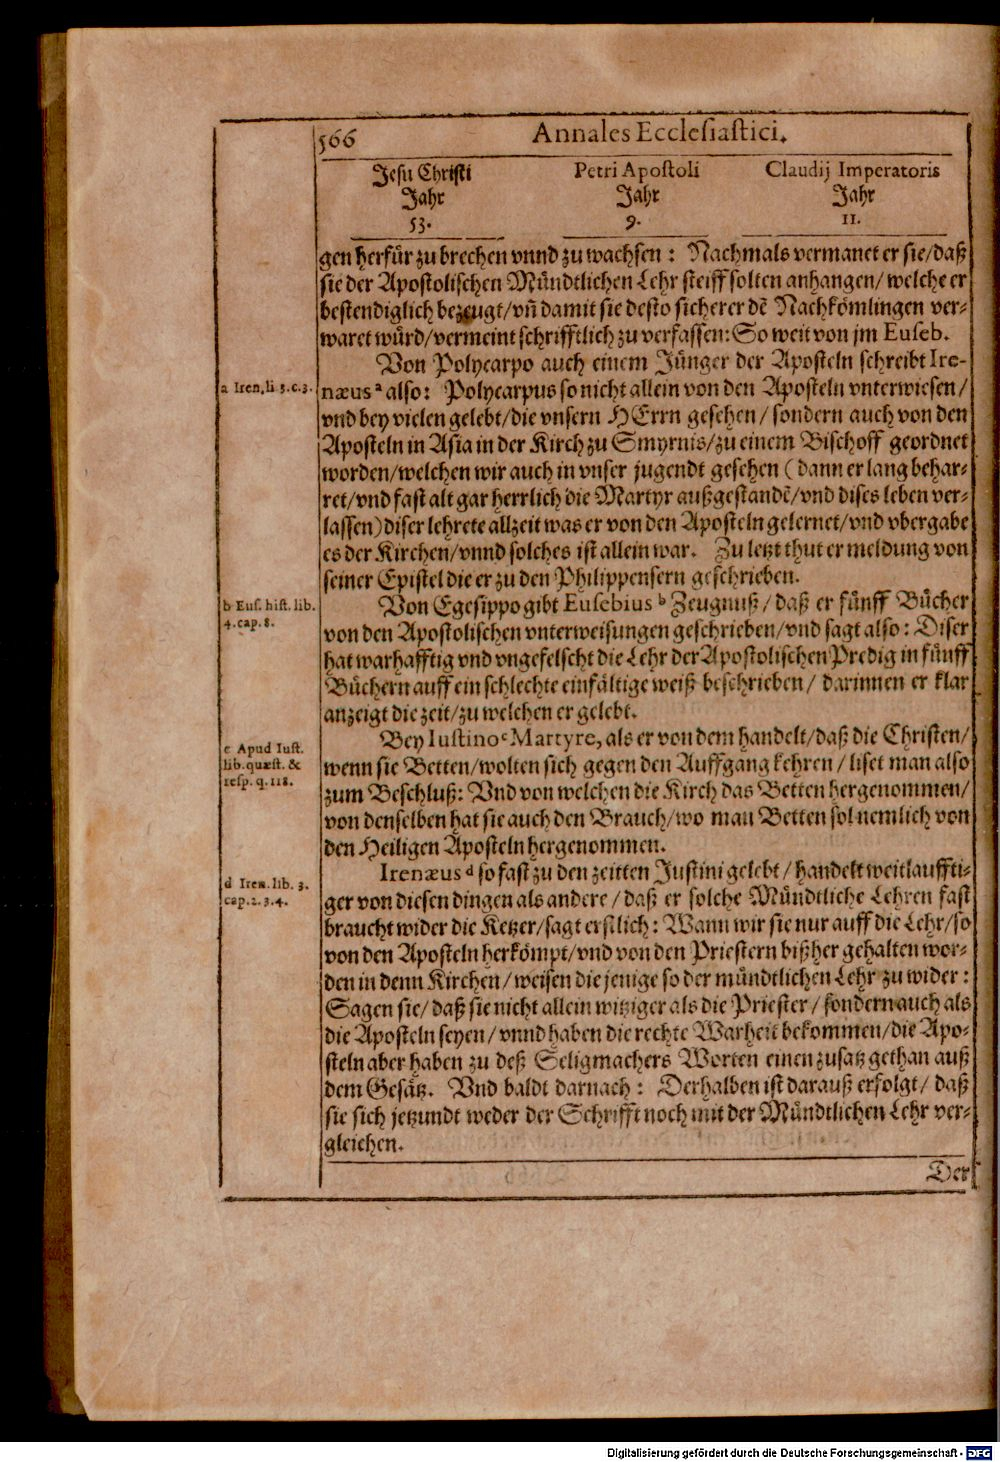 566 Annales Ecclesiastici.
Jesu Christi Petri Apostoli Claudij Imperatoris
Jahr Jahr Jahr
53. 9. 11.
gen herfür zu brechen vnnd zu wachsen: Nachmals vermanet er sie/daß
sie der Apostolischen Mündtlichen Lehr steiff solten anhangen/welche er
bestendiglich bezeugt/vñ damit sie desto sicherer dẽ Nachkömlingen ver-
waret würd/vermeint schrifftlich zu verfassen: So weit von jm Euseb.
Von Polycarpo auch einem Jünger der Aposteln schreibt Ire-
a Iren. li 3. c. 3.
næus a also: Polycarpus so nicht allein von den Aposteln vnterwiesen/
vnd bey vielen gelebt/die vnsern HErrn gesehen/sondern auch von den
Aposteln in Asia in der Kirch zu Smyrnis/zu einem Bischoff geordnet
worden/welchen wir auch in vnser jugendt gesehen (dann er lang behar-
ret/vnd fast alt gar herrlich die Martyr außgestandẽ/vnd dises leben ver-
lassen) diser lehrete allzeit was er von den Aposteln gelernet/vnd vbergabe
es der Kirchen/vnnd solches ist allein war. Zu letzt thut er meldung von
seiner Epistel die er zu den Philippensern geschrieben.
b Eus. hist. lib.
4. cap. 8.
Von Egesippo gibt Eusebius b Zeugnuß/daß er fünff Bücher
von den Apostolischen vnterweisungen geschrieben/vnd sagt also: Diser
hat warhafftig vnd vngefelscht die Lehr der Apostolischen Predig in fünff
Büchern auff ein schlechte einfältige weiß beschrieben/darinnen er klar
anzeigt die zeit/zu welchen er gelebt.
c Apud Iust.
lib. quæst. &
resp. q. 118.
Bey Iustino c Martyre, als er von dem handelt/daß die Christen/
wenn sie Betten/wolten sich gegen den Auffgang kehren/liset man also
zum Beschluß: Vnd von welchen die Kirch das Betten hergenommen/
von denselben hat sie auch den Brauch/wo man Betten sol nemlich von
den Heiligen Aposteln hergenommen.
d Iren. lib. 3.
cap. 2. 3. 4.
Irenæus d so fast zu den zeitten Justini gelebt/handelt weitlauffti-
ger von diesen dingen als andere/daß er solche Mündtliche Lehren fast
braucht wider die Ketzer/sagt erstlich: Wann wir sie nur auff die Lehr/so
von den Aposteln herkömpt/vnd von den Priestern bißher gehalten wor-
den in denn Kirchen/weisen die jenige so der mündtlichen Lehr zu wider:
Sagen sie/daß sie nicht allein witziger als die Priester/sondern auch als
die Aposteln seyen/vnnd haben die rechte Warheit bekommen/die Apo-
steln aber haben zu deß Seligmachers Worten einen zusatz gethan auß
dem Gesätz. Vnd baldt darnach: Derhalben ist darauß erfolgt/daß
sie sich jetzundt weder der Schrifft noch mit der Mündtlichen Lehr ver-
gleichen.
Der
Digitalisierung gefördert durch die Deutsche Forschungsgemeinschaft - DFG